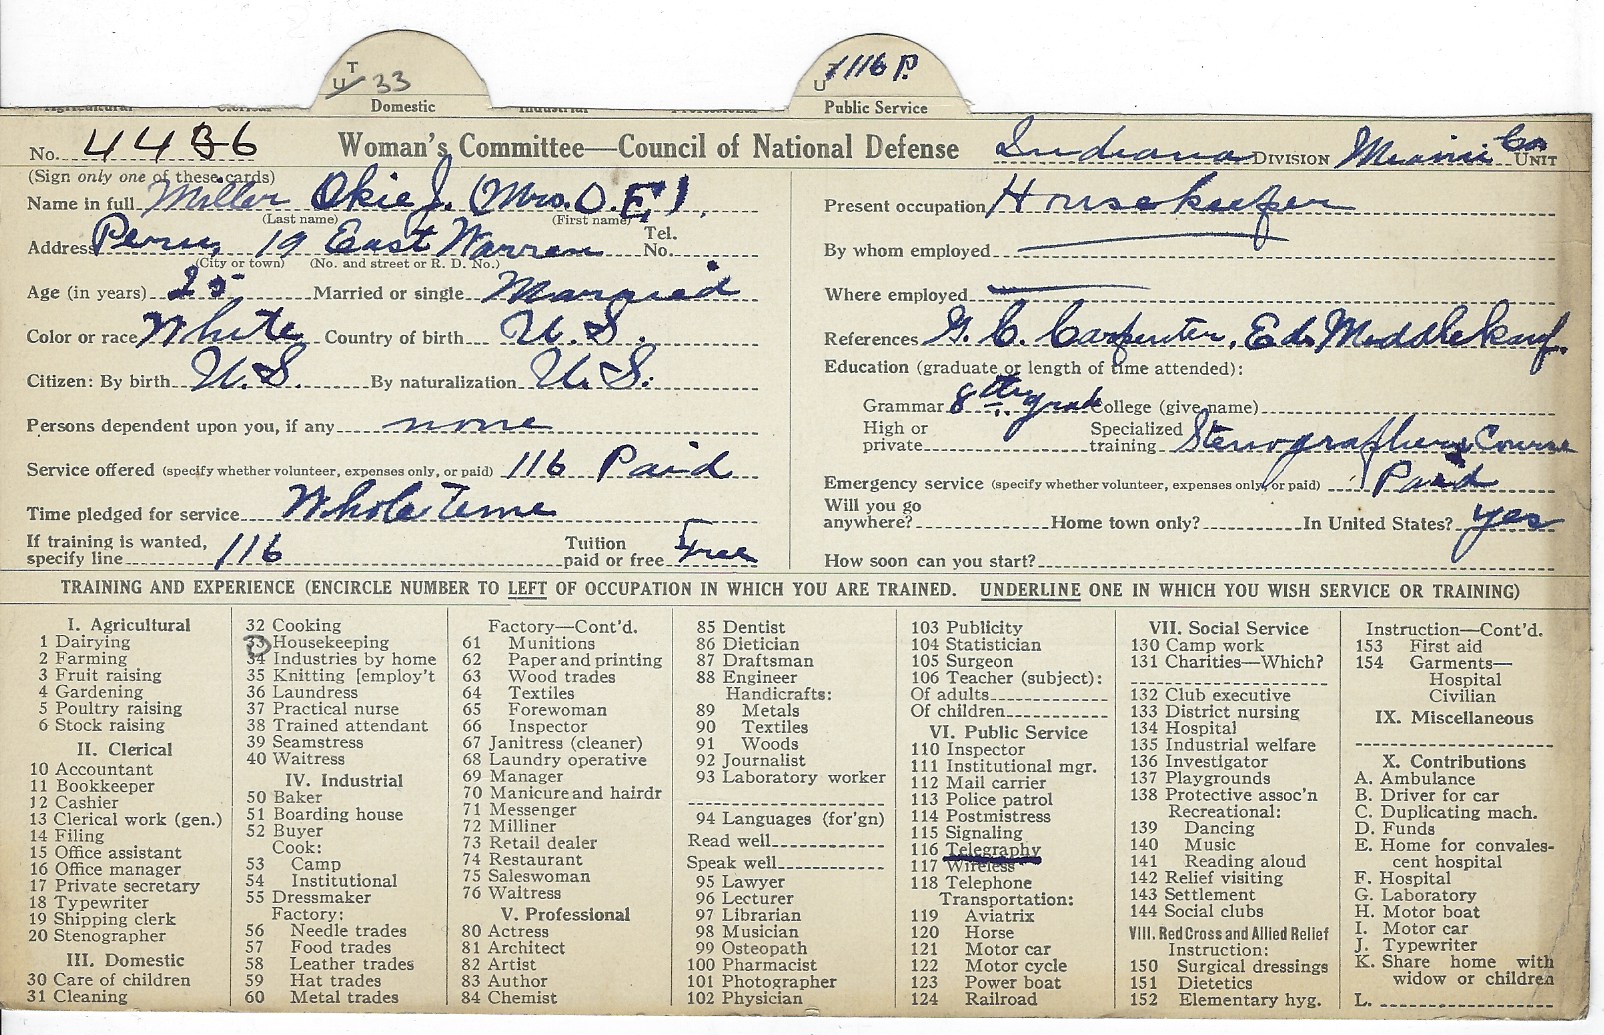 T
U 33
Domestic
U 116 P.
Public Service
No. 4436 Woman's Committee—Council of National Defense Indiana DIVISION Miami Co. UNIT
(Sign only one of these cards)
Name in full Miller Okie J. (Mrs. O. E.)
(Last name) (First name)
Address Peru, 19 East Warren Tel. No.
(City or town) (No. and street or R. D. No.)
Age (in years) 25 Married or single Married
Color or race White Country of birth U.S.
Citizen: By birth U.S. By naturalization U.S.
Persons dependent upon you, if any none
Service offered (specify whether volunteer, expenses only, or paid) 116 Paid
Time pledged for service Whole Time
If training is wanted, specify line 116 Tuition paid or free Free
Present occupation Housekeeper
By whom employed
Where employed
References G. C. Carpenter, Ed. Middlekauf.
Education (graduate or length of time attended):
Grammar 8th grade College (give name)
High or private Specialized training Stenographers Course
Emergency service (specify whether volunteer, expenses only, or paid) Paid
Will you go anywhere? Home town only? In United States? yes
How soon can you start?
TRAINING AND EXPERIENCE (ENCIRCLE NUMBER TO LEFT OF OCCUPATION IN WHICH YOU ARE TRAINED. UNDERLINE ONE IN WHICH YOU WISH SERVICE OR TRAINING)
I. Agricultural
1 Dairying
2 Farming
3 Fruit raising
4 Gardening
5 Poultry raising
6 Stock raising
II. Clerical
10 Accountant
11 Bookkeeper
12 Cashier
13 Clerical work (gen.)
14 Filing
15 Office assistant
16 Office manager
17 Private secretary
18 Typewriter
19 Shipping clerk
20 Stenographer
III. Domestic
30 Care of children
31 Cleaning
32 Cooking
33 Housekeeping
34 Industries by home
35 Knitting [employ't
36 Laundress
37 Practical nurse
38 Trained attendant
39 Seamstress
40 Waitress
IV. Industrial
50 Baker
51 Boarding house
52 Buyer
Cook:
53 Camp
54 Institutional
55 Dressmaker
Factory:
56 Needle trades
57 Food trades
58 Leather trades
59 Hat trades
60 Metal trades
Factory—Cont'd.
61 Munitions
62 Paper and printing
63 Wood trades
64 Textiles
65 Forewoman
66 Inspector
67 Janitress (cleaner)
68 Laundry operative
69 Manager
70 Manicure and hairdr
71 Messenger
72 Milliner
73 Retail dealer
74 Restaurant
75 Saleswoman
76 Waitress
V. Professional
80 Actress
81 Architect
82 Artist
83 Author
84 Chemist
85 Dentist
86 Dietician
87 Draftsman
88 Engineer
Handicrafts:
89 Metals
90 Textiles
91 Woods
92 Journalist
93 Laboratory worker
94 Languages (for'gn)
Read well
Speak well
95 Lawyer
96 Lecturer
97 Librarian
98 Musician
99 Osteopath
100 Pharmacist
101 Photographer
102 Physician
103 Publicity
104 Statistician
105 Surgeon
106 Teacher (subject):
Of adults
Of children
VI. Public Service
110 Inspector
111 Institutional mgr.
112 Mail carrier
113 Police patrol
114 Postmistress
115 Signaling
116 Telegraphy
117 Wireless
118 Telephone
Transportation:
119 Aviatrix
120 Horse
121 Motor car
122 Motor cycle
123 Power boat
124 Railroad
VII. Social Service
130 Camp work
131 Charities—Which?
132 Club executive
133 District nursing
134 Hospital
135 Industrial welfare
136 Investigator
137 Playgrounds
138 Protective assoc'n
Recreational:
139 Dancing
140 Music
141 Reading aloud
142 Relief visiting
143 Settlement
144 Social clubs
VIII. Red Cross and Allied Relief
Instruction:
150 Surgical dressings
151 Dietetics
152 Elementary hyg.
Instruction—Cont'd.
153 First aid
154 Garments—
Hospital
Civilian
IX. Miscellaneous
X. Contributions
A. Ambulance
B. Driver for car
C. Duplicating mach.
D. Funds
E. Home for convales-
cent hospital
F. Hospital
G. Laboratory
H. Motor boat
I. Motor car
J. Typewriter
K. Share home with
widow or children
L.